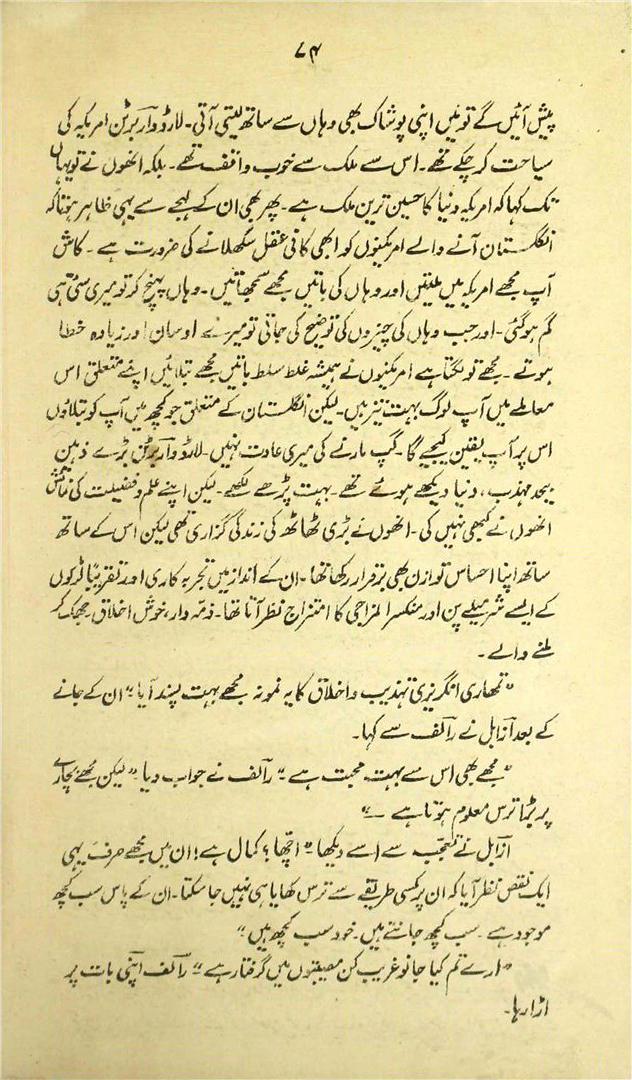 ۷۴
پیش آئیں گے تو میں اپنی پوشاک بھی وہاں سے ساتھ لیتی آتی۔ لارڈ وار برٹن امریکہ کی
سیاحت کر چکے تھے۔ اس سے ملک سے خوب واقف تھے۔ بلکہ انھوں نے تو یہاں
تک کہا کہ امریکہ دنیا کا حسین ترین ملک ہے۔ پھر بھی ان کے لہجے سے یہی ظاہر ہوتا کہ
انگلستان آنے والے امریکنوں کو ابھی کافی عقل سکھلانے کی ضرورت ہے۔ کاش
آپ مجھے امریکہ میں ملیتیں اور وہاں کی باتیں مجھے سمجھاتیں۔ وہاں پہنچ کر تو میری سٹی ہی
گم ہو گئی۔ اور جب وہاں کی چیزوں کی توضیح کی جاتی تو میرے اوسان اور زیادہ خطا
ہوتے۔ مجھے تو لگتا ہے امریکنوں نے ہمیشہ غلط سلط باتیں مجھے بتلائیں اپنے متعلق اس
معاملے میں آپ لوگ بہت تیز ہیں۔ لیکن انگلستان کے متعلق جو کچھ میں آپ کو بتلاؤں
اس پر آپ یقین کیجیے گا۔ گپ مارنے کی میری عادت نہیں۔ لارڈ وار برٹن بڑے ذہین
بیحد مہذب، دنیا دیکھے ہوئے تھے۔ بہت پڑھے لکھے۔ لیکن اپنے علم و فضیلت کی نمائش
انھوں نے کبھی نہیں کی۔ انھوں نے بڑی ٹھاٹھ کی زندگی گزاری تھی لیکن اس کے ساتھ
ساتھ اپنا احساس توازن بھی برقرار رکھا تھا۔ ان کے انداز میں تجربہ کاری اور تقریباً لڑکوں
کے ایسے شرمیلے پن اور منکسر المزاجی کا امتزاج نظر آتا تھا۔ ذمہ دار، خوش اخلاق جھک کر
ملنے والے۔
"تمھاری انگریزی تہذیب و اخلاق کا یہ نمونہ مجھے بہت پسند آیا" ان کے جانے
کے بعد آزابل نے رالف سے کہا۔
"مجھے بھی اس سے بہت محبت ہے" رالف نے جواب دیا۔ "لیکن مجھے بچارے
پر بڑا ترس معلوم ہوتا ہے۔"
ازابل نے تعجب سے اسے دیکھا "اچھا؟ کمال ہے! ان میں مجھے صرف یہی
ایک نقص نظر آیا کہ ان پر کسی طریقے سے ترس کھایا ہی نہیں جا سکتا۔ ان کے پاس سب کچھ
موجود ہے۔ سب کچھ جانتے ہیں۔ خود سب کچھ ہیں"
"ارے تم کیا جانو غریب کن مصیبتوں میں گرفتار ہے" رالف اپنی بات پر
اڑا رہا۔